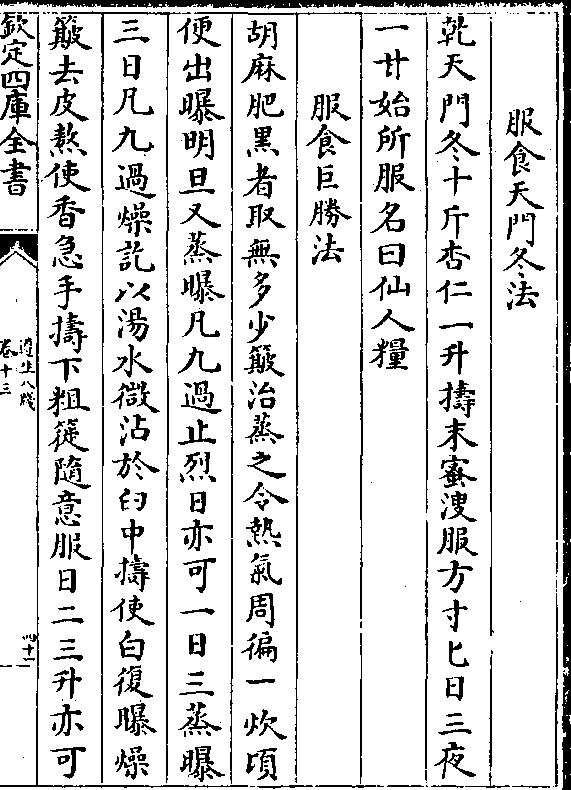 服食天門冬法
乾天門冬十斤杏仁一升擣末蜜溲服方寸匕日三夜
一甘始所服名曰仙人糧
服食巨勝法
胡麻肥黑者取無多少簸治蒸之令熱氣周徧一炊頃
便出曝明旦又蒸曝凡九過止烈日亦可一日三蒸曝
三日凡九過燥訖以湯水微沾於臼中擣使白復曝燥
簸去皮熬使香急手擣下粗簁隨意服日二三升亦可
欽定四庫全書
遵生八牋
卷十三
四十一